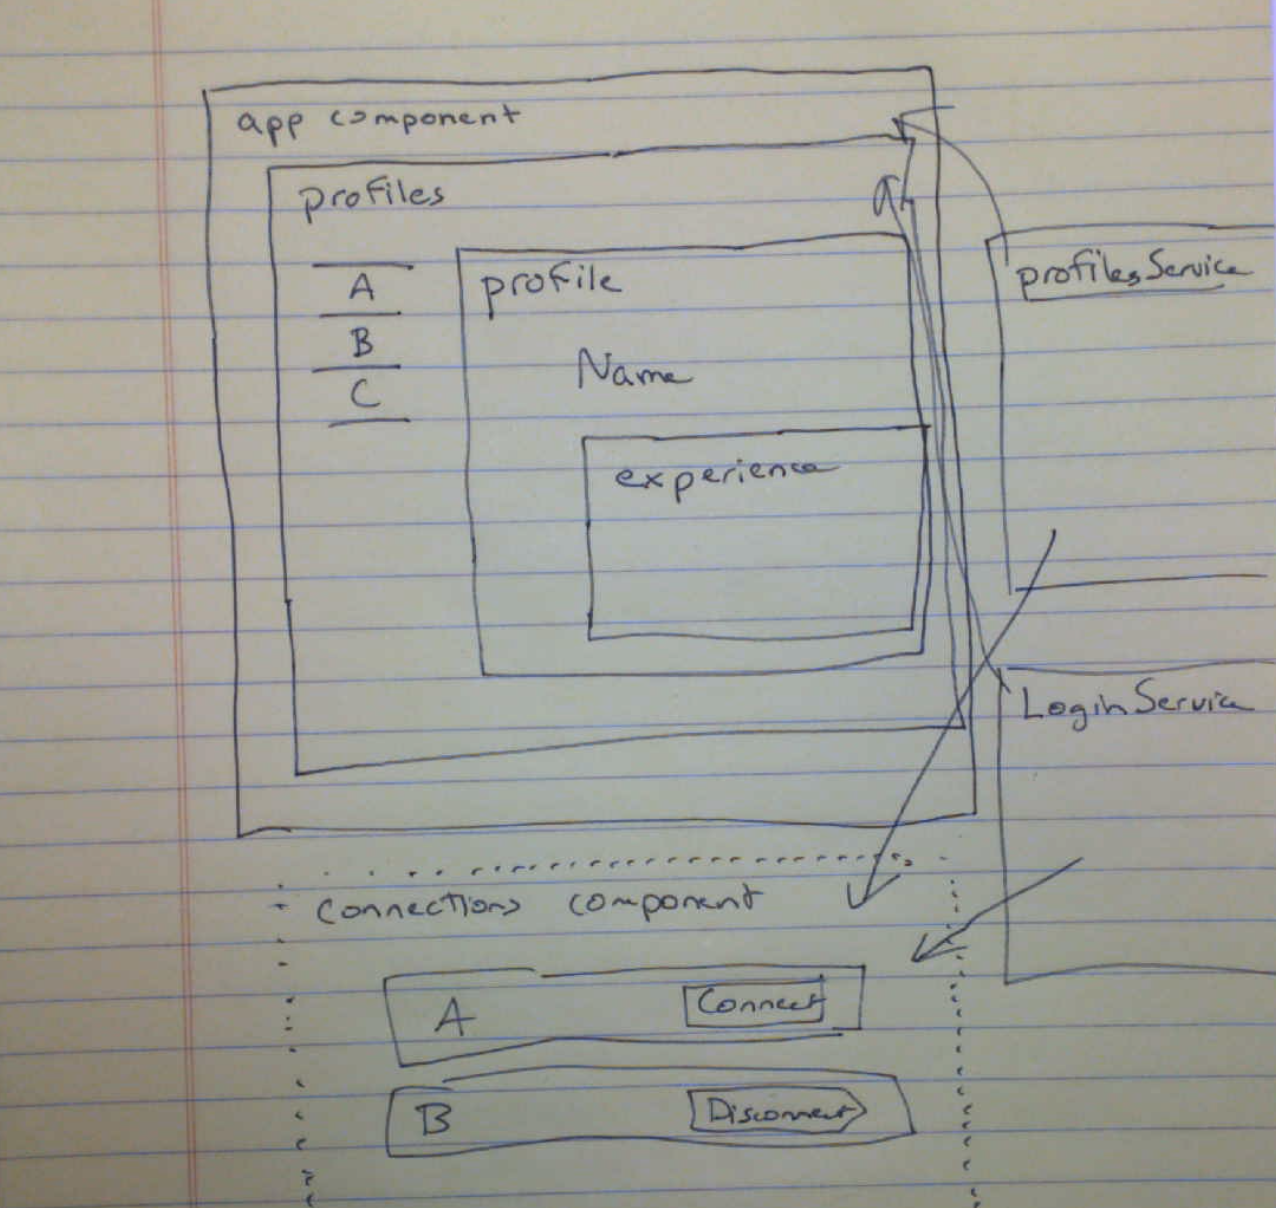 app component
profiles
A
B
C
profile
Name
experience
profilesService
LoginService
Connections component
A Connect
B Disconnect